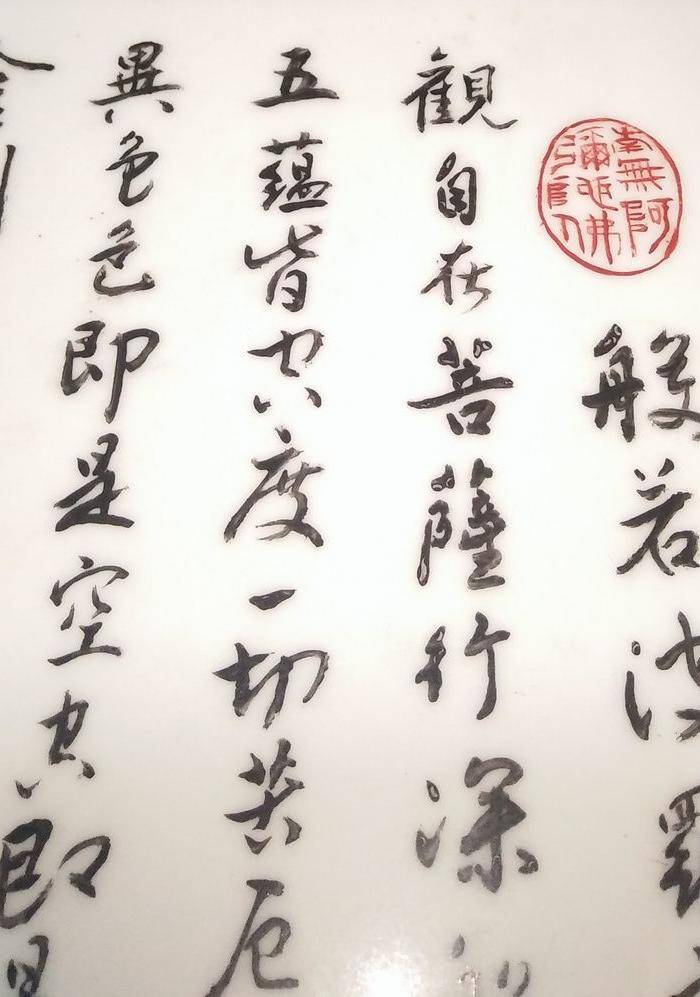 南無阿
彌陀佛
般若波羅
觀自在菩薩行深
五蘊皆空度一切苦厄
異色色即是空空即是